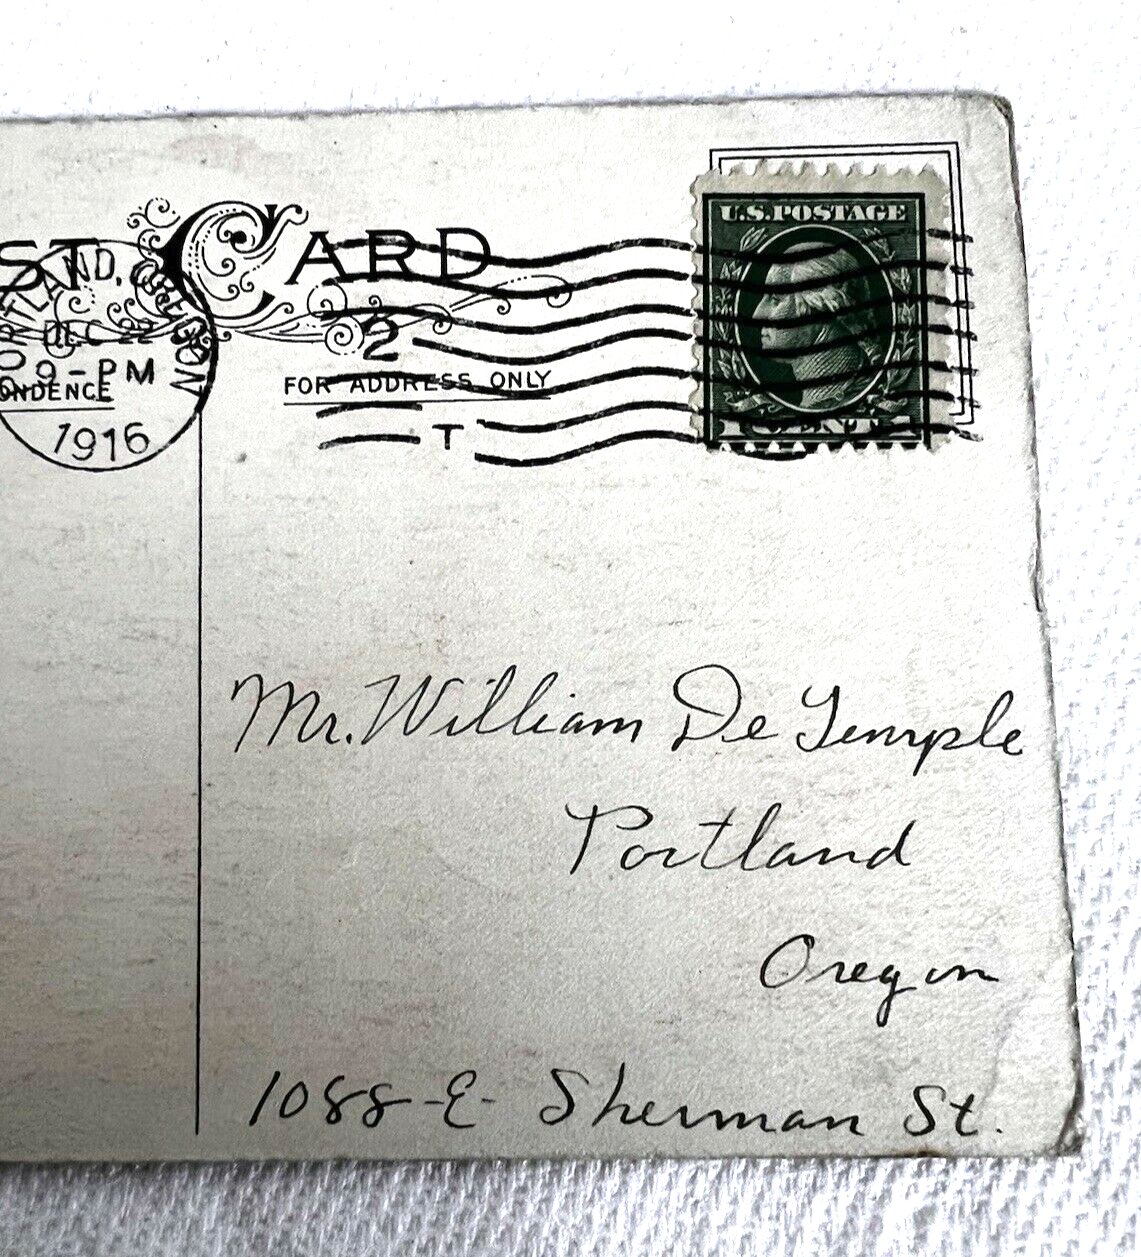 ST CARD
U.S. POSTAGE
PORTLAND, OREGON
DEC 22
9-PM
1916
2
T
ONDENCE
FOR ADDRESS ONLY
1 CENT 1
Mr. William De Temple
Portland
Oregon
1088-E- Sherman St.